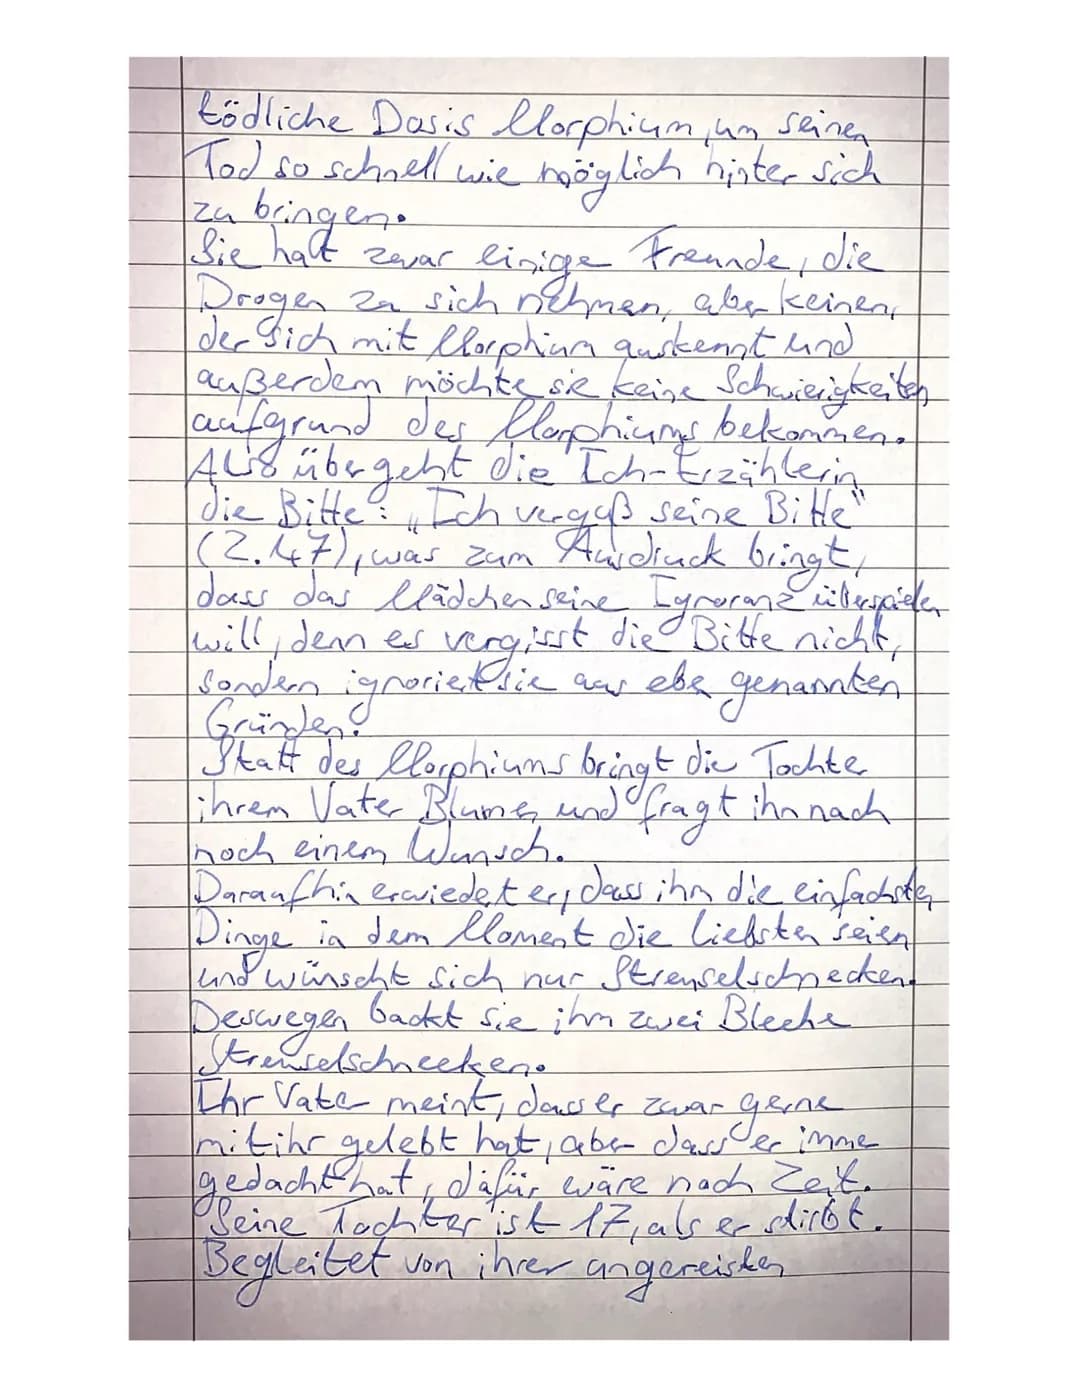 tödliche Dosis Morphium, um seinen
Tod so schnell wie möglich hinter sich
zu bringen.
Sie hat zwar einige Freunde, die
Drogen zu sich nehmen, aber keinen,
der sich mit Morphium auskennt und
außerdem möchte sie keine Schwierigkeiten
aufgrund des Morphiums bekommen.
Also übergeht die Ich-Erzählerin
die Bitte: „Ich vergaß seine Bitte“
(Z.47), was zum Ausdruck bringt,
dass das Mädchen seine Ignoranz überspielen
will, denn es vergisst die Bitte nicht,
sondern ignoriert sie aus ebe genannten
Gründen.
Statt des Morphiums bringt die Tochter
ihrem Vater Blumen und fragt ihn nach
noch einem Wunsch.
Daraufhin erwiedet er, dass ihm die einfachsten
Dinge in dem Moment die liebsten seien
und wünscht sich nur Streuselschnecken.
Deswegen backt sie ihm zwei Bleche
Streuselschnecken.
Ihr Vater meint, dass er zwar gerne
mit ihr gelebt hat, aber dass er imme
gedacht hat, dafür wäre noch Zeit.
Seine Tochter ist 17, als er stirbt.
Begleitet von ihrer angereisten